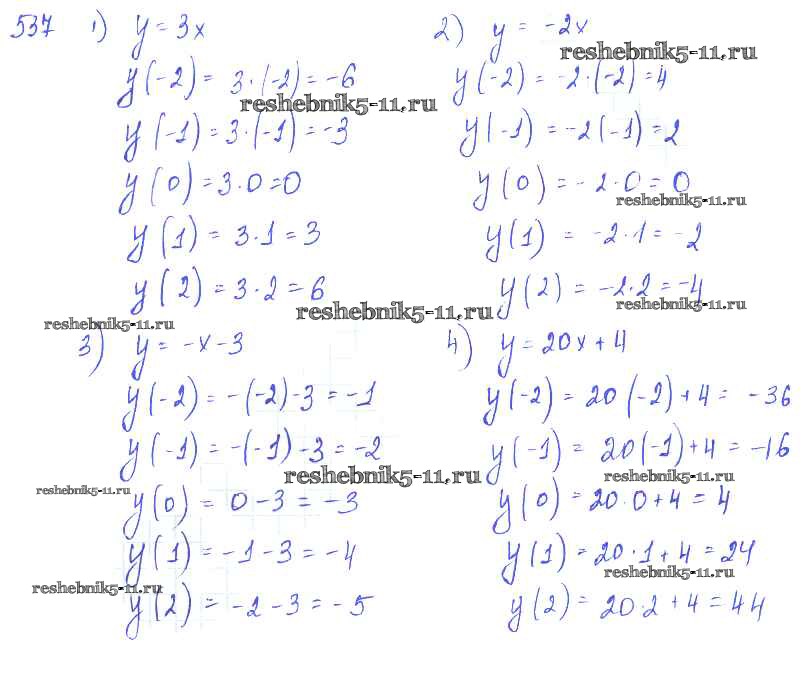 537 1) y = 3x
y(-2) = 3·(-2) = -6
reshebnik5-11.ru
y(-1) = 3·(-1) = -3
y(0) = 3·0 = 0
y(1) = 3·1 = 3
y(2) = 3·2 = 6
reshebnik5-11.ru
2) y = -2x
reshebnik5-11.ru
y(-2) = -2·(-2) = 4
y(-1) = -2(-1) = 2
y(0) = -2·0 = 0
reshebnik5-11.ru
y(1) = -2·1 = -2
y(2) = -2·2 = -4
reshebnik5-11.ru
reshebnik5-11.ru
3) y = -x-3
y(-2) = -(-2)-3 = -1
y(-1) = -(-1)-3 = -2
reshebnik5-11.ru
reshebnik5-11.ru
y(0) = 0-3 = -3
y(1) = -1-3 = -4
reshebnik5-11.ru
y(2) = -2-3 = -5
4) y = 20x+4
y(-2) = 20(-2)+4 = -36
y(-1) = 20(-1)+4 = -16
reshebnik5-11.ru
y(0) = 20·0+4 = 4
y(1) = 20·1+4 = 24
reshebnik5-11.ru
y(2) = 20·2+4 = 44